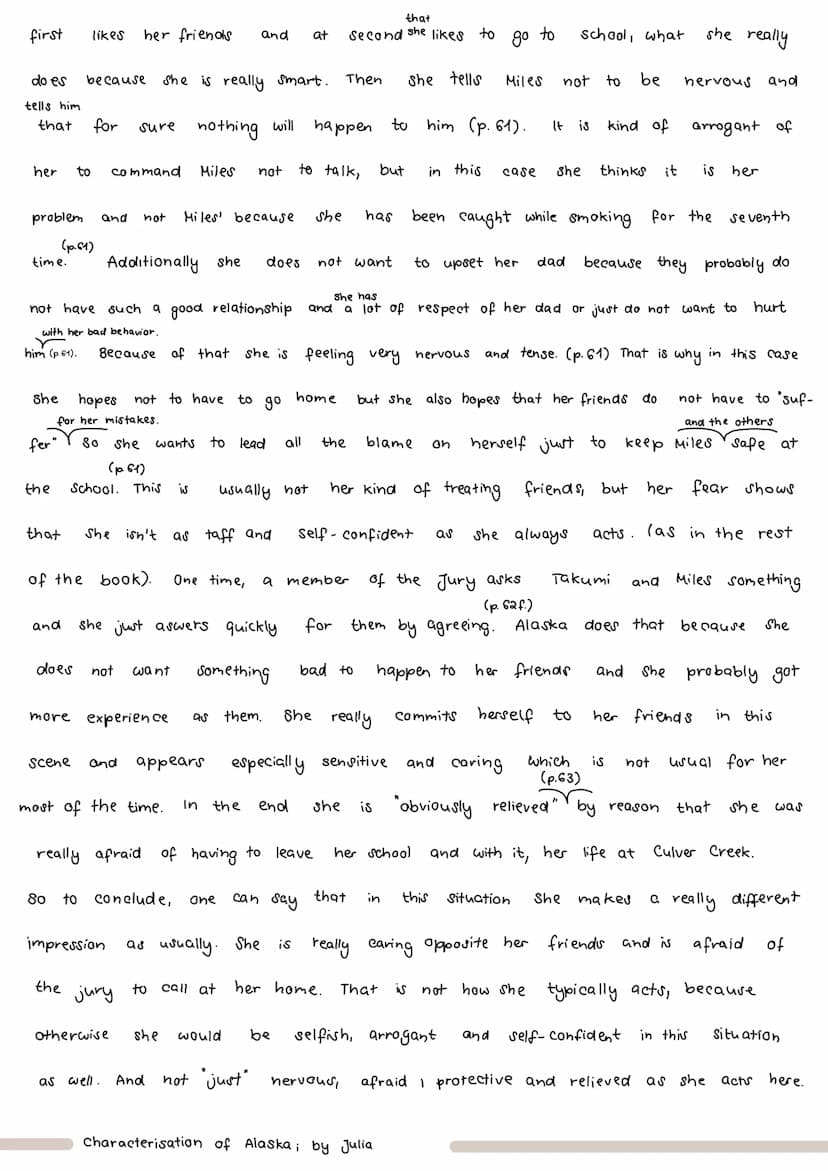 that
first likes her friends and at second she likes to go to school, what she really
does because she is really smart. Then she tells Miles not to be nervous and
tells him
that for sure nothing will happen to him (p. 61). It is kind of arrogant of
her to command Miles not to talk, but in this case she thinks it is her
problem and not Miles' because she has been caught while smoking for the seventh
(p.61)
time. Additionally she does not want to upset her dad because they probably do
she has
not have such a good relationship and a lot of respect of her dad or just do not want to hurt
with her bad behavior.
him (p 61). Because of that she is feeling very nervous and tense. (p.61) That is why in this case
she hopes not to have to go home but she also hopes that her friends do not have to "suf-
for her mistakes. and the others
fer" so she wants to lead all the blame on herself just to keep Miles safe at
(p 61)
the school. This is usually not her kind of treating friends, but her fear shows
that she isn't as taff and self-confident as she always acts. (as in the rest
of the book). One time, a member of the Jury asks Takumi and Miles something
(p. 62f.)
and she just aswers quickly for them by agreeing. Alaska does that because she
does not want something bad to happen to her friends and she probably got
more experience as them. She really commits herself to her friends in this
scene and appears especially sensitive and caring which is not usual for her
(p.63)
most of the time. In the end she is "obviously relieved" by reason that she was
really afraid of having to leave her school and with it, her life at Culver Creek.
So to conclude, one can say that in this situation she makes a really different
impression as usually. She is really caring opposite her friends and is afraid of
the jury to call at her home. That is not how she typically acts, because
otherwise she would be selfish, arrogant and self-confident in this situation
as well. And not "just" nervous, afraid, protective and relieved as she acts here.
Characterisation of Alaska; by Julia